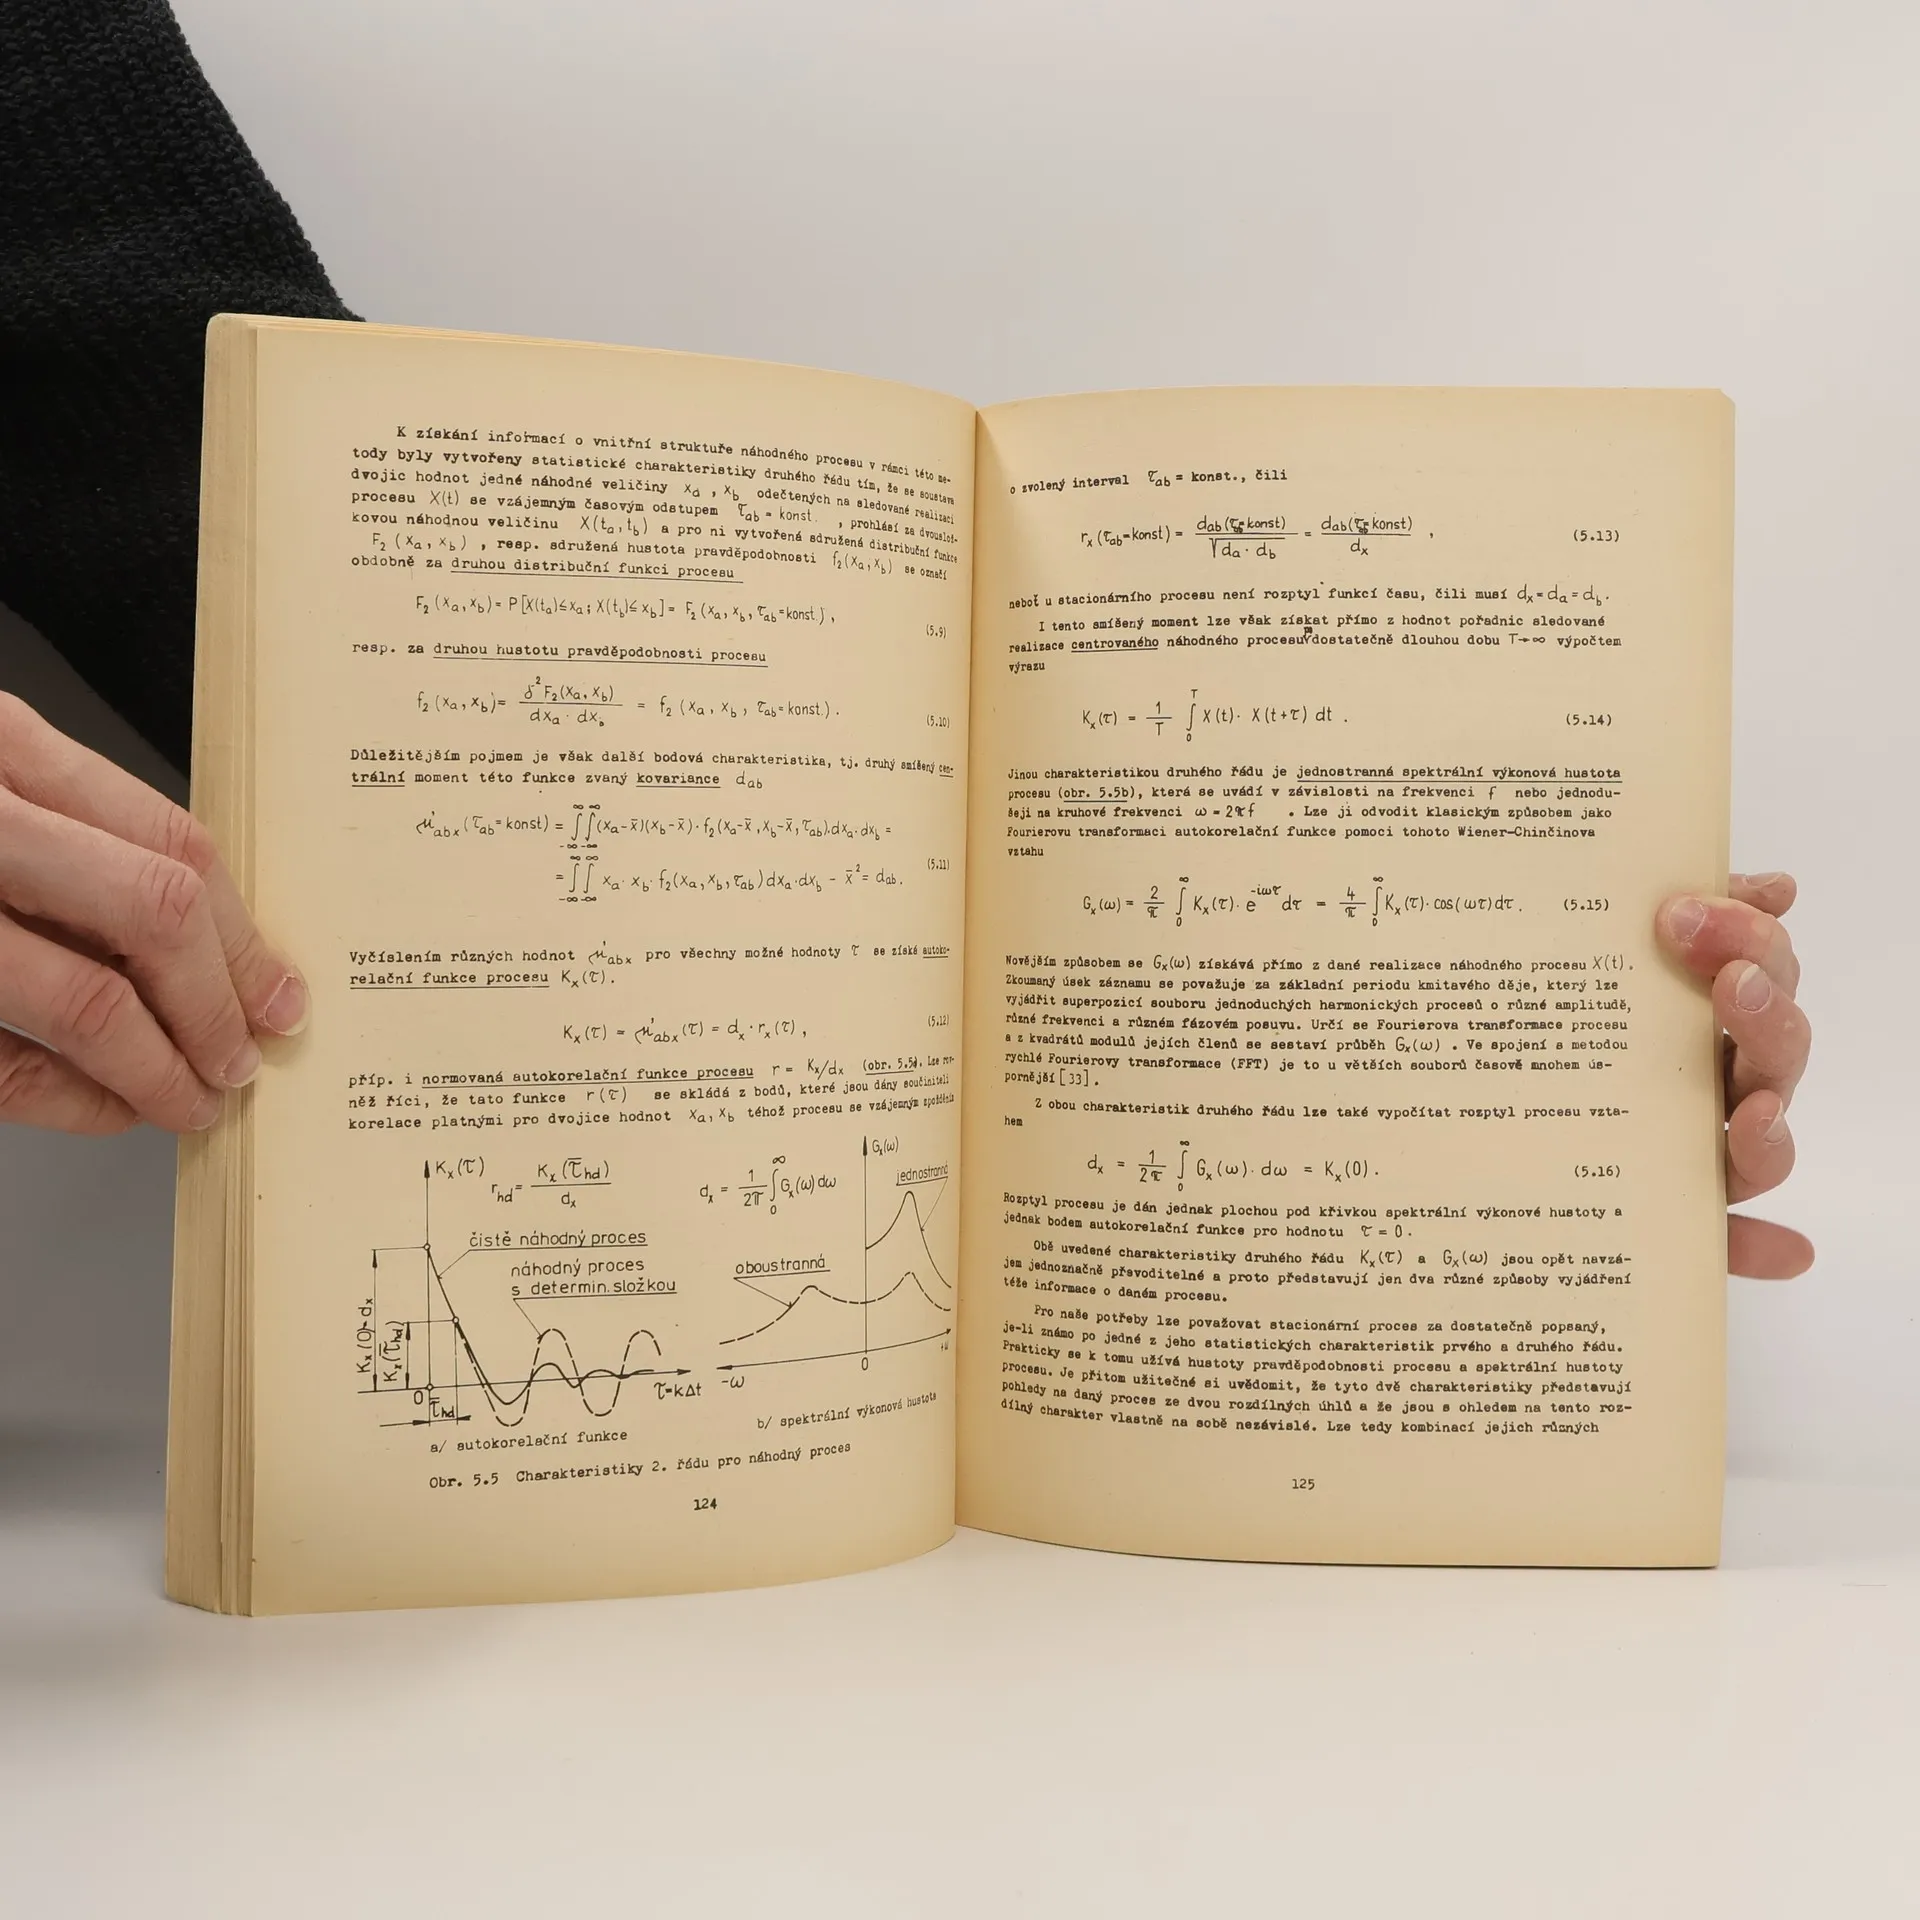 K získání informací o vnitřní struktuře náhodného procesu v rámci této me-
tody byly vytvořeny statistické charakteristiky druhého řádu tím, že se soustava
dvojic hodnot jedné náhodné veličiny xₐ , x_b odečtených na sledované realizaci
procesu X(t) se vzájemným časovým odstupem τ_ab = konst. , prohlásí za dvouslož-
kovou náhodnou veličinu X(tₐ,t_b) a pro ni vytvořená sdružená distribuční funkce
F₂ (xₐ, x_b) , resp. sdružená hustota pravděpodobnosti f₂(xₐ,x_b) se označí
obdobně za druhou distribuční funkci procesu
F₂ (xₐ,x_b) = P[X(tₐ)≤xₐ; X(t_b)≤x_b] = F₂ (xₐ, x_b, τ_ab=konst.) ,
(5.9)
resp. za druhou hustotu pravděpodobnosti procesu
f₂ (xₐ, x_b) = δ²F₂(xₐ, x_b) / dxₐ · dx_b = f₂ (xₐ, x_b, τ_ab=konst.) . (5.10)
Důležitějším pojmem je však další bodová charakteristika, tj. druhý smíšený cen-
trální moment této funkce zvaný kovariance d_ab
μ'_abx (τ_ab=konst) = ∫_{-∞}^{∞}∫_{-∞}^{∞}(xₐ-x̄)(x_b-x̄)·f₂(xₐ-x̄,x_b-x̄,τ_ab).dxₐ·dx_b =
= ∫_{-∞}^{∞}∫_{-∞}^{∞} xₐ·x_b·f₂(xₐ,x_b,τ_ab)dxₐ·dx_b - x̄² = d_ab. (5.11)
Vyčíslením různých hodnot μ'_abx pro všechny možné hodnoty τ se získá autoko-
relační funkce procesu K_x(τ).
K_x(τ) = μ'_abx(τ) = d_x·r_x(τ) , (5.12)
příp. i normovaná autokorelační funkce procesu r = K_x/d_x (obr. 5.5a). Lze rov-
něž říci, že tato funkce r(τ) se skládá z bodů, které jsou dány součiniteli
korelace platnými pro dvojice hodnot xₐ, x_b téhož procesu se vzájemným zpožděním
K_x(τ)
r_hd = K_x(τ̄_hd) / d_x
d_x = 1/2π ∫_0^∞ G_x(ω)dω
G_x(ω)
jednostranná
čistě náhodný proces
náhodný proces
s determin. složkou
oboustranná
K_x(0)=d_x
K_x(τ̄_hd)
0
τ̄_hd
τ=kΔt
-ω
0
+ω
a/ autokorelační funkce
b/ spektrální výkonová hustota
Obr. 5.5 Charakteristiky 2. řádu pro náhodný proces
124
o zvolený interval τ_ab = konst., čili
r_x(τ_ab=konst) = d_ab(τ_ab=konst) / √dₐ·d_b = d_ab(τ_ab=konst) / d_x , (5.13)
neboť u stacionárního procesu není rozptyl funkcí času, čili musí d_x = dₐ = d_b.
I tento smíšený moment lze však získat přímo z hodnot pořadnic sledované
realizace centrovaného náhodného procesu dostatečně dlouhou dobu T→∞ výpočtem
výrazu
K_x(τ) = 1/T ∫_0^T X(t)· X(t+τ) dt . (5.14)
Jinou charakteristikou druhého řádu je jednostranná spektrální výkonová hustota
procesu (obr. 5.5b), která se uvádí v závislosti na frekvenci f nebo jednodu-
šeji na kruhové frekvenci ω = 2πf . Lze ji odvodit klasickým způsobem jako
Fourierovu transformaci autokorelační funkce pomocí tohoto Wiener-Chinčinova
vztahu
G_x(ω) = 2/π ∫_0^∞ K_x(τ)·e^{-iωτ} dτ = 4/π ∫_0^∞ K_x(τ)·cos(ωτ)dτ . (5.15)
Novějším způsobem se G_x(ω) získává přímo z dané realizace náhodného procesu X(t).
Zkoumaný úsek záznamu se považuje za základní periodu kmitavého děje, který lze
vyjádřit superpozicí souboru jednoduchých harmonických procesů o různé amplitudě,
různé frekvenci a různém fázovém posuvu. Určí se Fourierova transformace procesu
a z kvadrátů modulů jejích členů se sestaví průběh G_x(ω) . Ve spojení s metodou
rychlé Fourierovy transformace (FFT) je to u větších souborů časově mnohem ús-
pornější [33].
Z obou charakteristik druhého řádu lze také vypočítat rozptyl procesu vzta-
hem
d_x = 1/2π ∫_0^∞ G_x(ω). dω = K_x(0). (5.16)
Rozptyl procesu je dán jednak plochou pod křivkou spektrální výkonové hustoty a
jednak bodem autokorelační funkce pro hodnotu τ = 0.
Obě uvedené charakteristiky druhého řádu K_x(τ) a G_x(ω) jsou opět navzá-
jem jednoznačně převoditelné a proto představují jen dva různé způsoby vyjádření
téže informace o daném procesu.
Pro naše potřeby lze považovat stacionární proces za dostatečně popsaný,
je-li známo po jedné z jeho statistických charakteristik prvého a druhého řádu.
Prakticky se k tomu užívá hustoty pravděpodobnosti procesu a spektrální hustoty
procesu. Je přitom užitečné si uvědomit, že tyto dvě charakteristiky představují
pohledy na daný proces ze dvou rozdílných úhlů a že jsou s ohledem na tento roz-
dílný charakter vlastně na sobě nezávislé. Lze tedy kombinací jejich různých
125